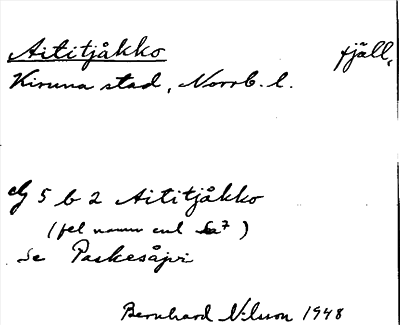 Aititjåkko fjäll,
Kiruna stad, Norrb. l.
5 b 2 Aititjåkko
(fel namn enl )
Se Paskesåpi
Bernhard Nilsson 1948